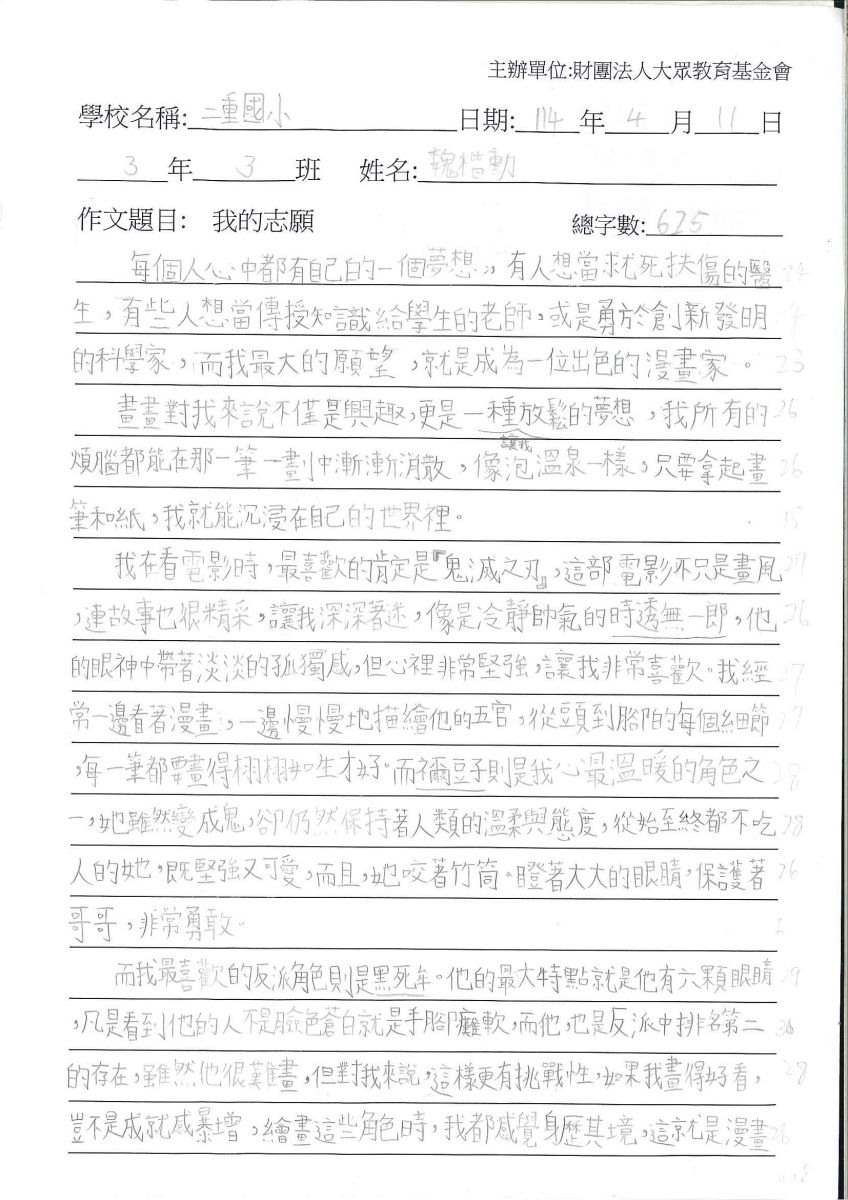 主辦單位:財團法人大眾教育基金會
學校名稱:二重國小 日期:114年4月11日
3年3班 姓名:魏楷勳
作文題目: 我的志願 總字數:625
每個人心中都有自己的一個夢想,,有人想當救死扶傷的醫 24
生,有些人想當傳授知識給學生的老師,或是勇於創新發明
的科學家,而我最大的願望,就是成為一位出色的漫畫家。 23
畫畫對我來說不僅是興趣,更是一種放鬆的夢想,我所有的 26
讓我
煩腦都能在那一筆一劃中漸漸消散,像泡溫泉一樣,只要拿起畫 26
筆和紙,我就能沉浸在自己的世界裡。 15
我在看電影時,最喜歡的肯定是『鬼滅之刃』,這部電影不只是畫風 29
,連故事也很精采,讓我深深著迷,像是冷靜帥氣的時透無一郎,他 26
的眼神中帶著淡淡的孤獨感,但心裡非常堅強,讓我非常喜歡。我經 27
常一邊看著漫畫,一邊慢慢地描繪他的五官,從頭到腳的每個細節 27
,每一筆都要畫得栩栩如生才好。而禰豆子則是我心最溫暖的角色之 28
一,她雖然變成鬼,卻仍然保持著人類的溫柔與態度,從始至終都不吃 28
人的她,既堅強又可愛,而且,她咬著竹筒。瞪著大大的眼睛,保護著 26
哥哥,非常勇敢。 6
而我最喜歡的反派角色則是黑死牟。他的最大特點就是他有六顆眼睛 29
,凡是看到他的人不是臉色蒼白就是手腳癱軟,而他,也是反派中排名第二 30
的存在,雖然他很難畫,但對我來說,這樣更有挑戰性,如果我畫得好看, 28
豈不是成就感暴增,繪畫這些角色時,我都感覺身歷其境,這就是漫畫 28